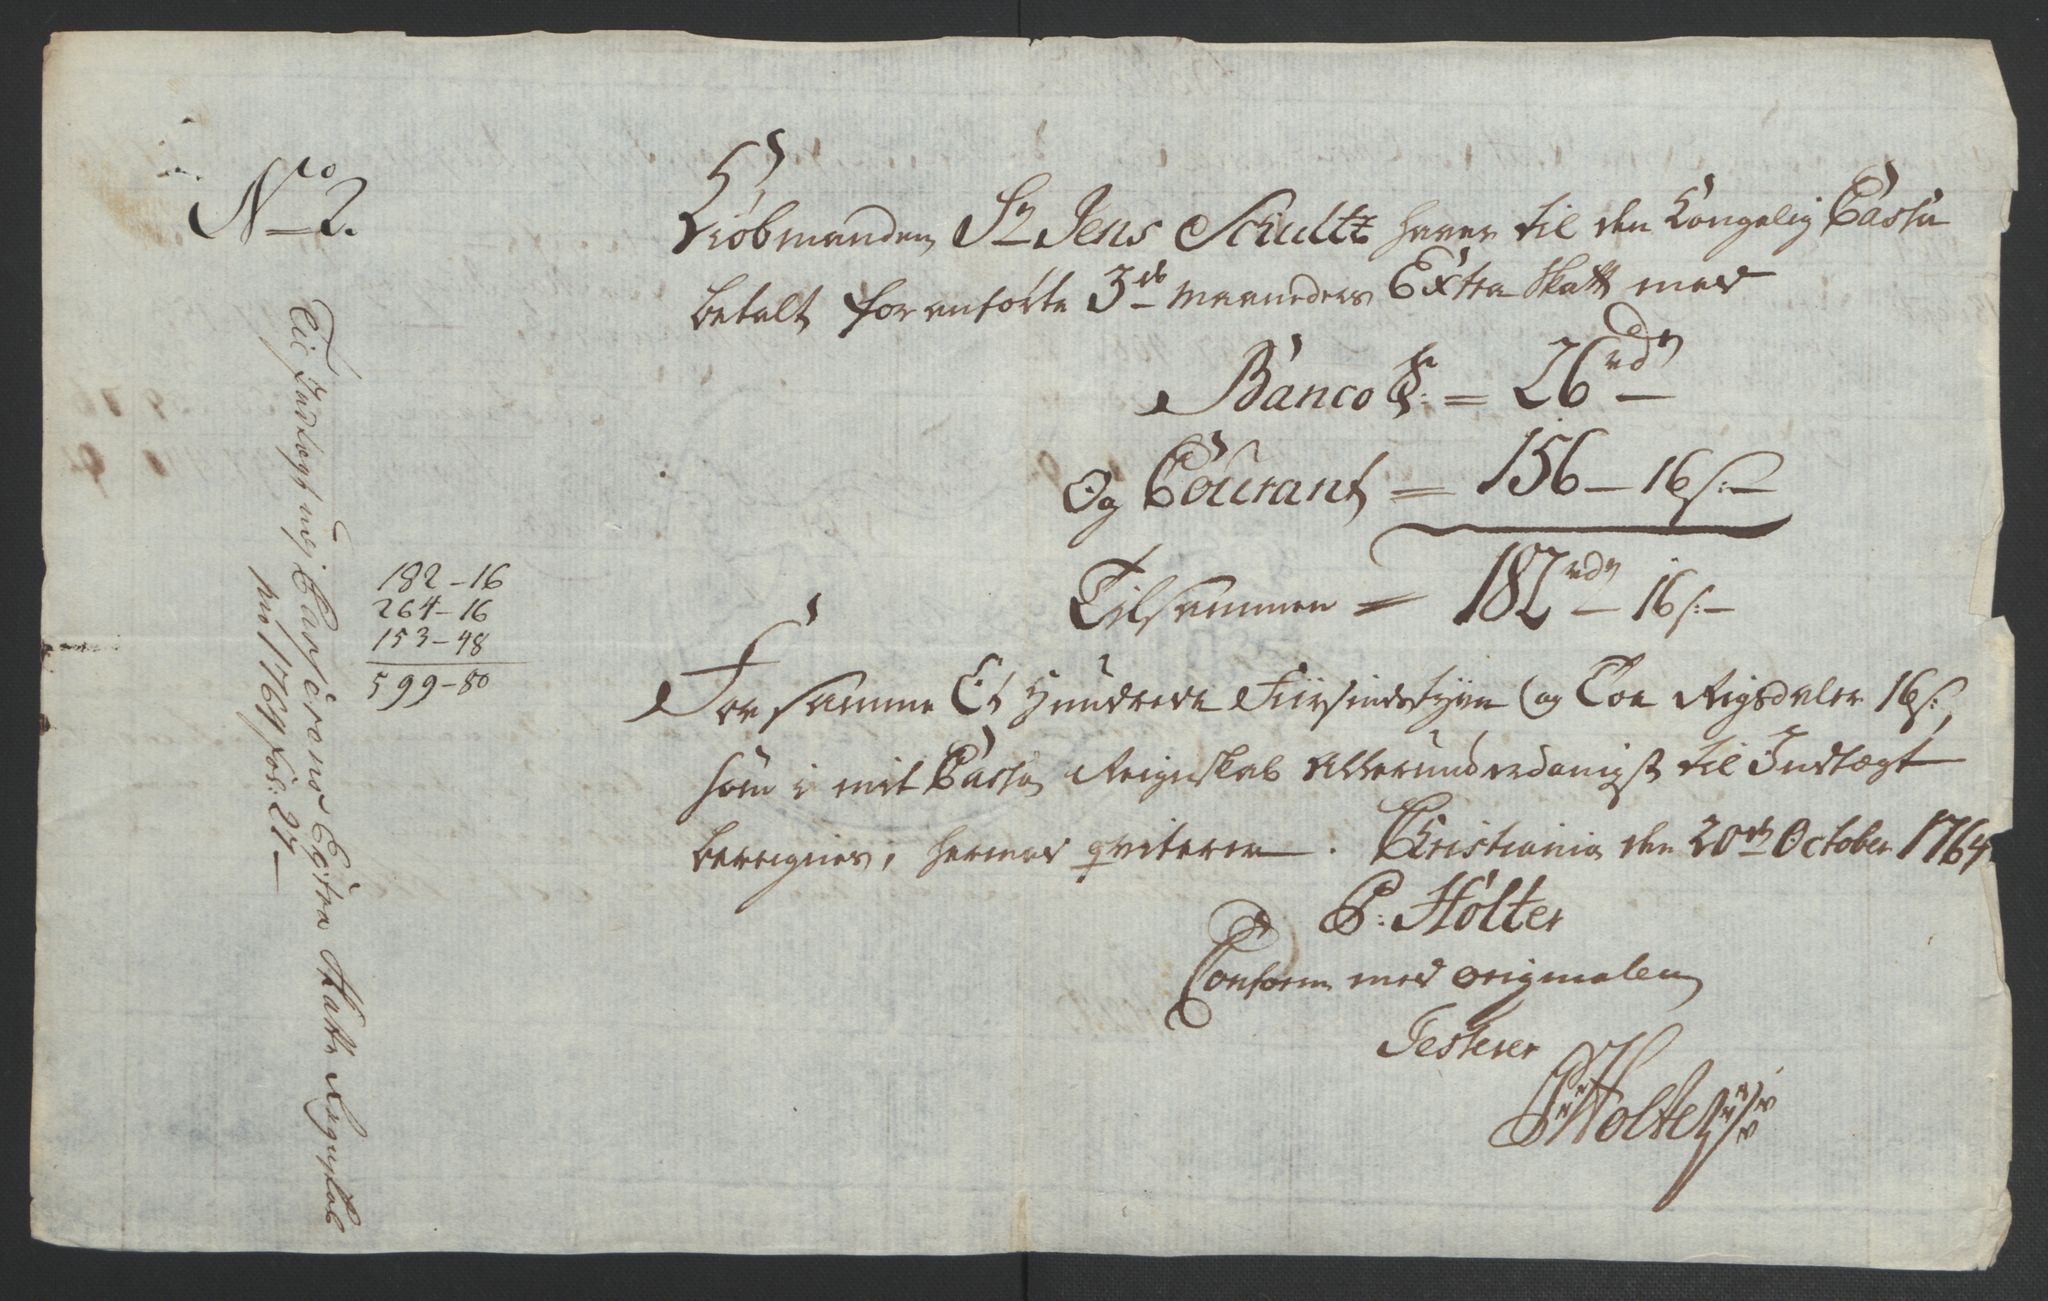 No 2.
Kiøbmanden Sr Jens Schultz haver til den Kongelig Cassa
betalt foranførte 3de Maaneders Extra Skatt med
Banco S: = 26 rdr
Og Courant = 156 - 16 s:
Tilsammen = 182 rdr - 16 s:
For samme Et Hundrede Fiirsindstyve og Toe Rigsdaler 16 s:,
som i mit Cassa Reignskab allerunderdanigst til Indtægt
bereignes, hermed qviteren. Christiania den 20de October 1764
P: Holter
Conform med originalen
Testerer
P Holter
182 - 16
264 - 16
153 - 48
599 - 80
Til Indtægt ved Extra Skatt Regnskab
pro 1764 fol: 27